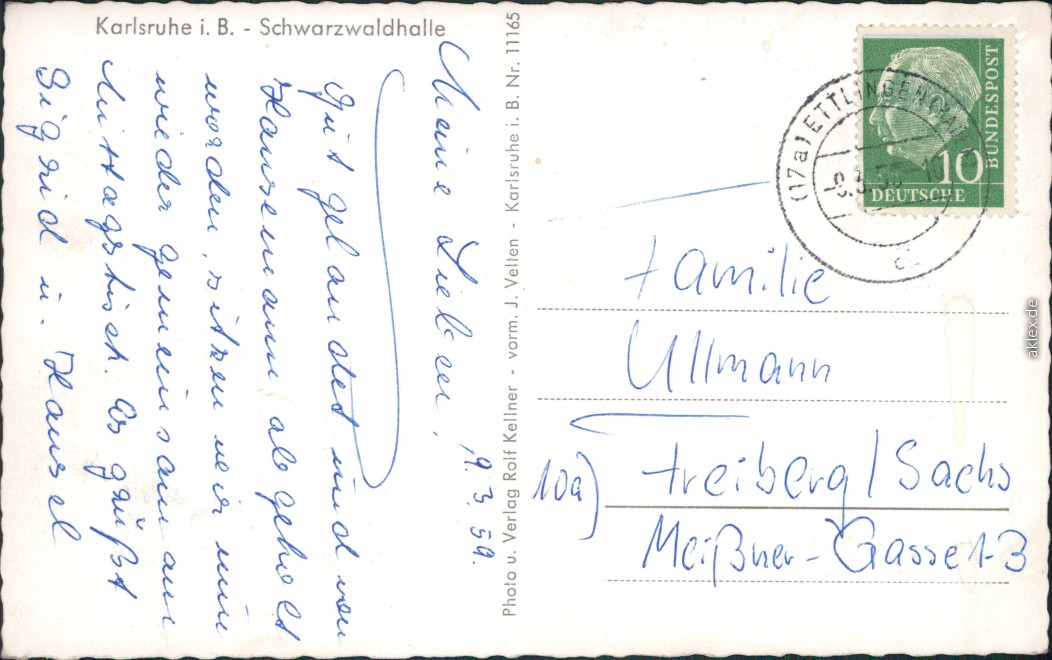 Karlsruhe i. B. - Schwarzwaldhalle
Meine Lieben,
19. 3. 59.
Gut gelandet und von
Hansemann abgeholt
worden, sitzen wir nun
wieder gemeinsam am
Mittagstisch. Es grüßt
Sigrid u. Hansel
Photo u. Verlag Rolf Kellner - vorm. J. Velten - Karlsruhe i. B. Nr. 11165
(17a) ETTLINGEN
DEUTSCHE
BUNDESPOST
10
Familie
Ullmann
10a) Freiberg/Sachs
Meißner-Gasse 1-3
aklex.de